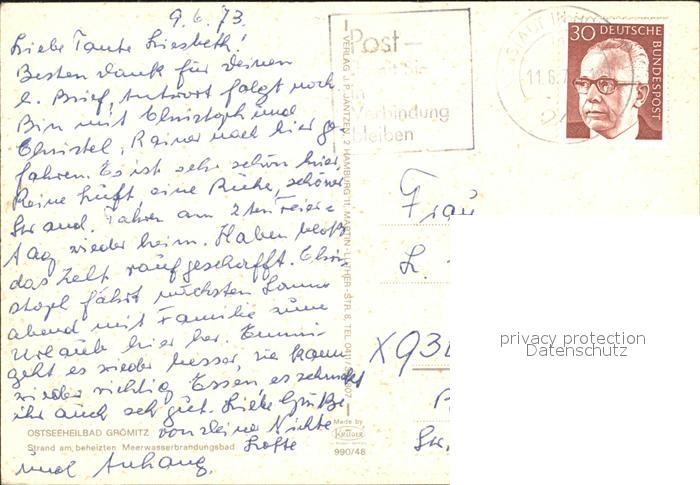 9.6.73.
Liebe Tante Liesbeth!
Besten Dank für Deinen
l. Brief, Antwort folgt noch.
Bin mit Christoph und
Christel, Rainer nach hier ge-
fahren. Es ist sehr schön hier,
Reine Luft, eine Ruhe, schöner
Strand. Fahren am 2ten Feier=
tag wieder heim. Haben bloß
das Zelt raufgeschafft. Chri-
stoph fährt nächsten Sonn
abend mit Familie zum
Urlaub hier her. Emmi
geht es wieder besser, sie kann
wieder richtig Essen, es schmeckt
ihr auch sehr gut. Liebe Grüße
von Deine Nichte
Lotte
und Anhang.
OSTSEEHEILBAD GRÖMITZ
Strand am beheizten Meerwasserbrandungsbad
VERLAG J. P. JANTZEN, 2 HAMBURG 11, MARTIN-LUTHER-STR. 8, TEL. 0411/
Made by
Krüger
990/48
Post –
in
Verbindung
bleiben
11.6.7
30 DEUTSCHE
BUNDESPOST
Frau
L.
X 93
Str.
privacy protection
Datenschutz